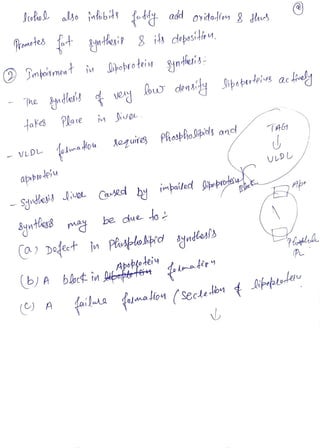 Alcohol also inhibits fatty acid oxidation & thus
Promotes fat synthesis & its deposition.
② Impairment in lipoprotein synthesis-
- The synthesis of very low density lipoproteins actively
takes Place in liver.
- VLDL formation requires Phospholipids and
apoprotein
TAG
↓
VLDL
- Synthesis liver Caused by impaired lipoprotein
Block
synthesis may be due to:
Apo
(a) Defect in Phospholipid synthesis
PL
(b) A block in Apoprotein formation
(c) A failure formation (Secretion of lipoprotein
↓